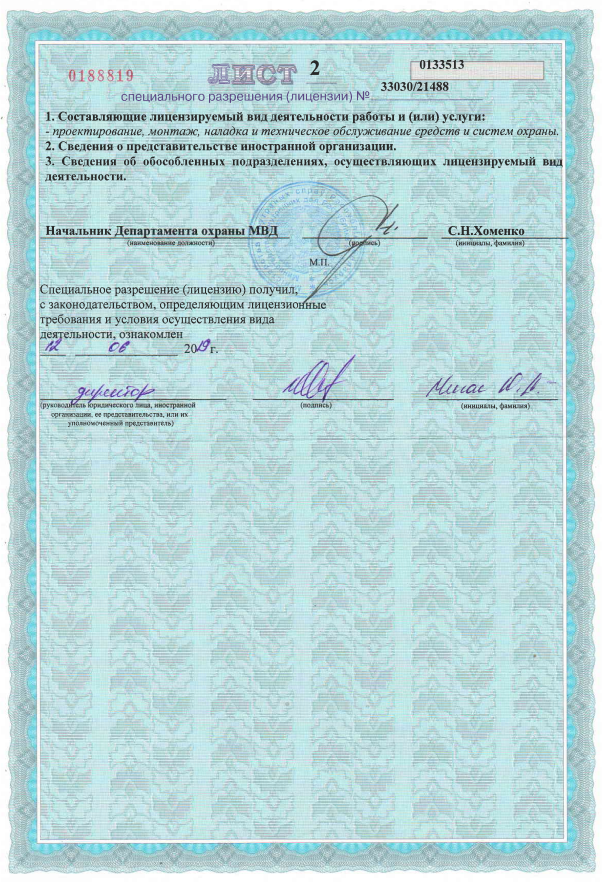 0188819 ЛИСТ 2 0133513
специального разрешения (лицензии) № 33030/21488
1. Составляющие лицензируемый вид деятельности работы и (или) услуги:
- проектирование, монтаж, наладка и техническое обслуживание средств и систем охраны.
2. Сведения о представительстве иностранной организации.
3. Сведения об обособленных подразделениях, осуществляющих лицензируемый вид
деятельности.
Начальник Департамента охраны МВД С.Н.Хоменко
(наименование должности) (подпись) (инициалы, фамилия)
М.П.
Специальное разрешение (лицензию) получил,
с законодательством, определяющим лицензионные
требования и условия осуществления вида
деятельности, ознакомлен
12 06 2019 г.
директор
(руководитель юридического лица, иностранной (подпись) (инициалы, фамилия)
организации, ее представительства, или их
уполномоченный представитель)